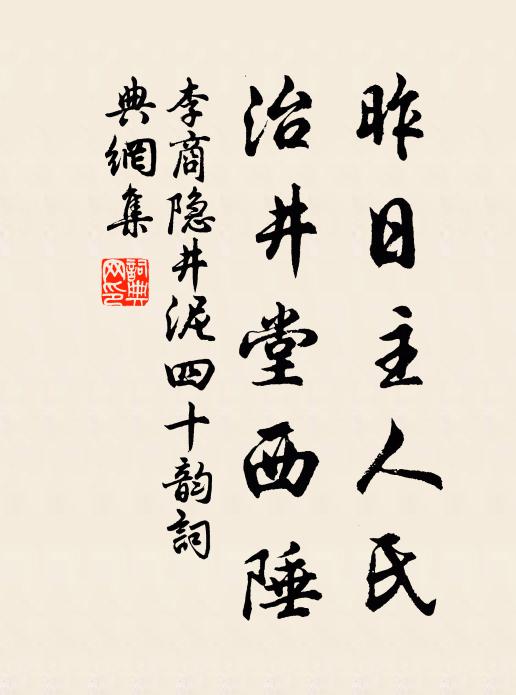 昨日主人氏
治井堂西陲
李商隐井泥四十韵詞
典網集
詞典
网印